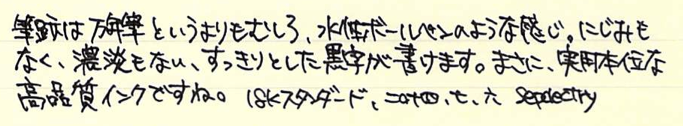 筆跡は万年筆というよりもむしろ、水性ボールペンのような感じ。にじみも
なく、濃淡もない、すっきりとした黒字が書けます。まさに、実用本位な
高品質インクですね。18Kスタンダード、